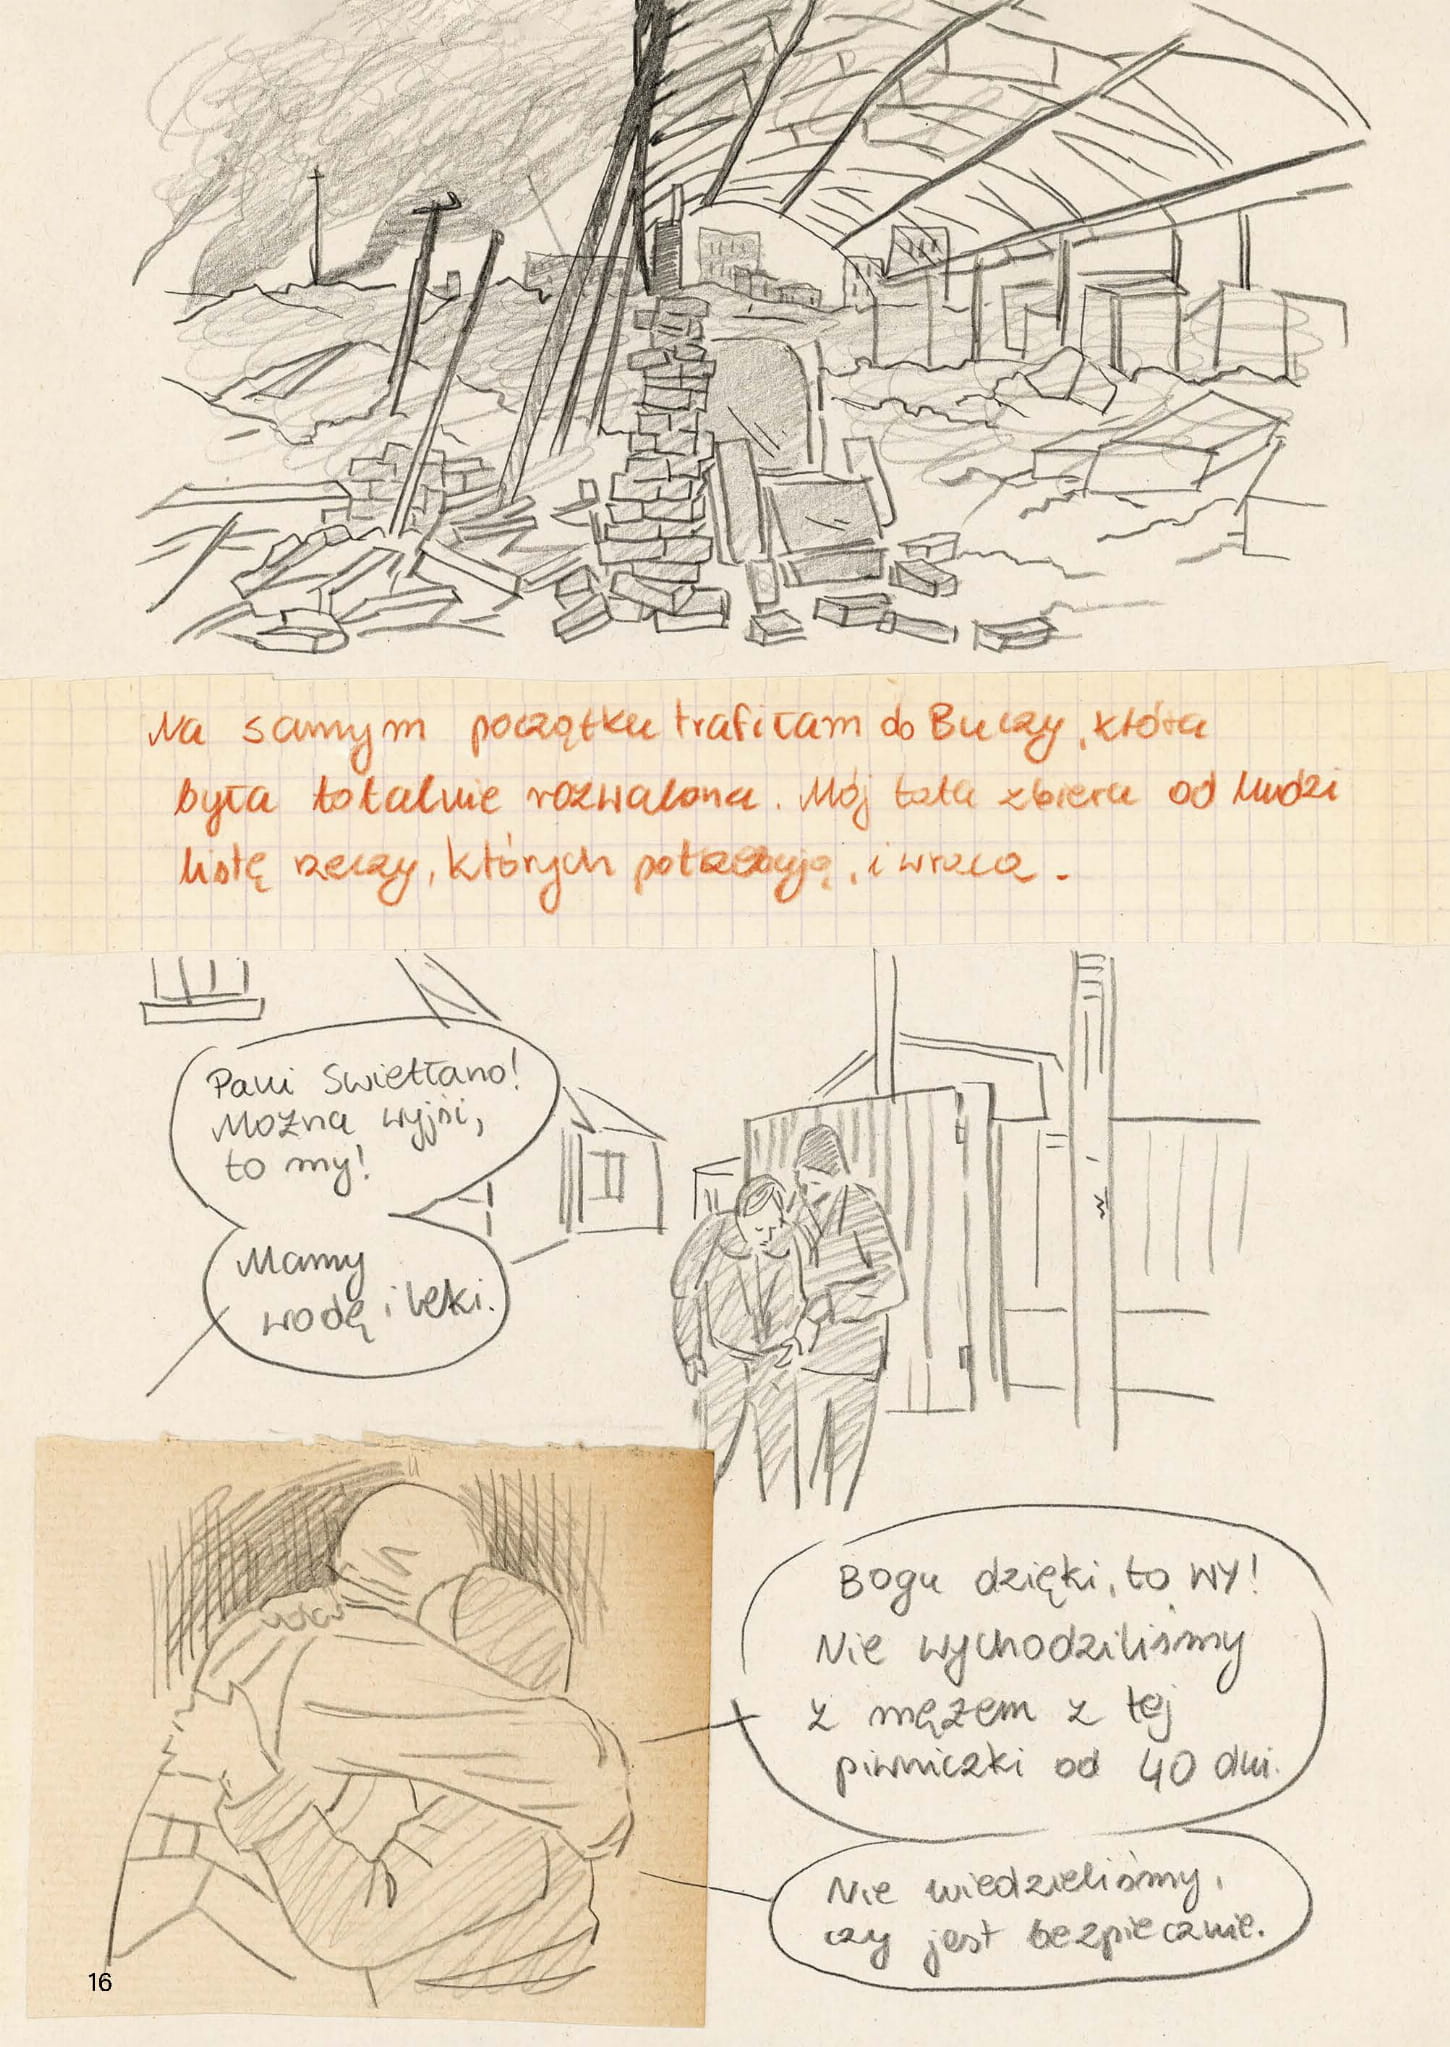 Na samym początku trafiłam do Buczy, która
była totalnie rozwalona. Mój tata zbiera od ludzi
listę rzeczy, których potrzebują, i wraca.
Pani Swietłano!
Można wyjść,
to my!
Mamy
wodę i leki.
Bogu dzięki, to WY!
Nie wychodziliśmy
z mężem z tej
piwniczki od 40 dni.
Nie wiedzieliśmy,
czy jest bezpiecznie.
16